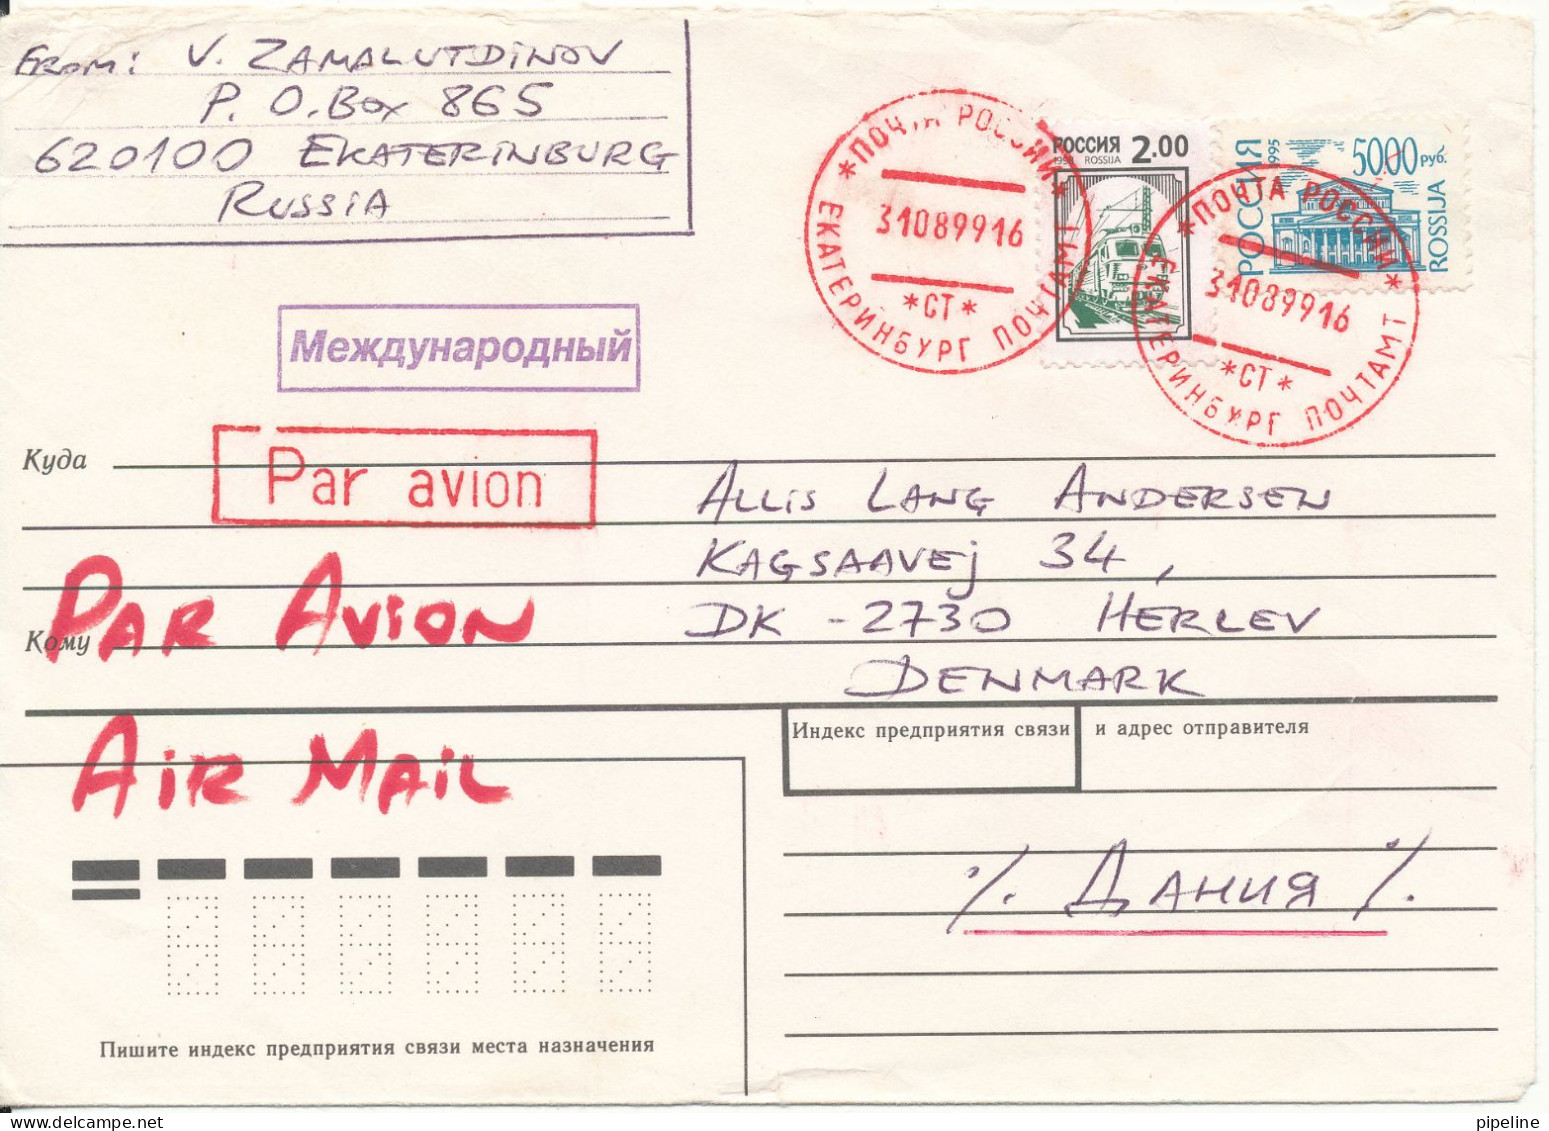 From: V. ZAMALUTDINOV
P. O. Box 865
620100 EKATERINBURG
RUSSIA
*ПОЧТА РОССИИ*
31089916
*СТ*
ЕКАТЕРИНБУРГ ПОЧТАМТ
РОССИЯ 2.00
1998 ROSSIJA
РОССИЯ
1995
5000 руб.
ROSSIJA
*ПОЧТА РОССИИ*
31089916
*СТ*
ЕКАТЕРИНБУРГ ПОЧТАМТ
Международный
Par avion
Куда
ALLIS LANG ANDERSEN
KAGSAAVEJ 34,
PAR AVION
Кому
DK - 2730 HERLEV
DENMARK
AIR MAIL
Индекс предприятия связи и адрес отправителя
٪ ДАНИЯ ٪
Пишите индекс предприятия связи места назначения
pipeline